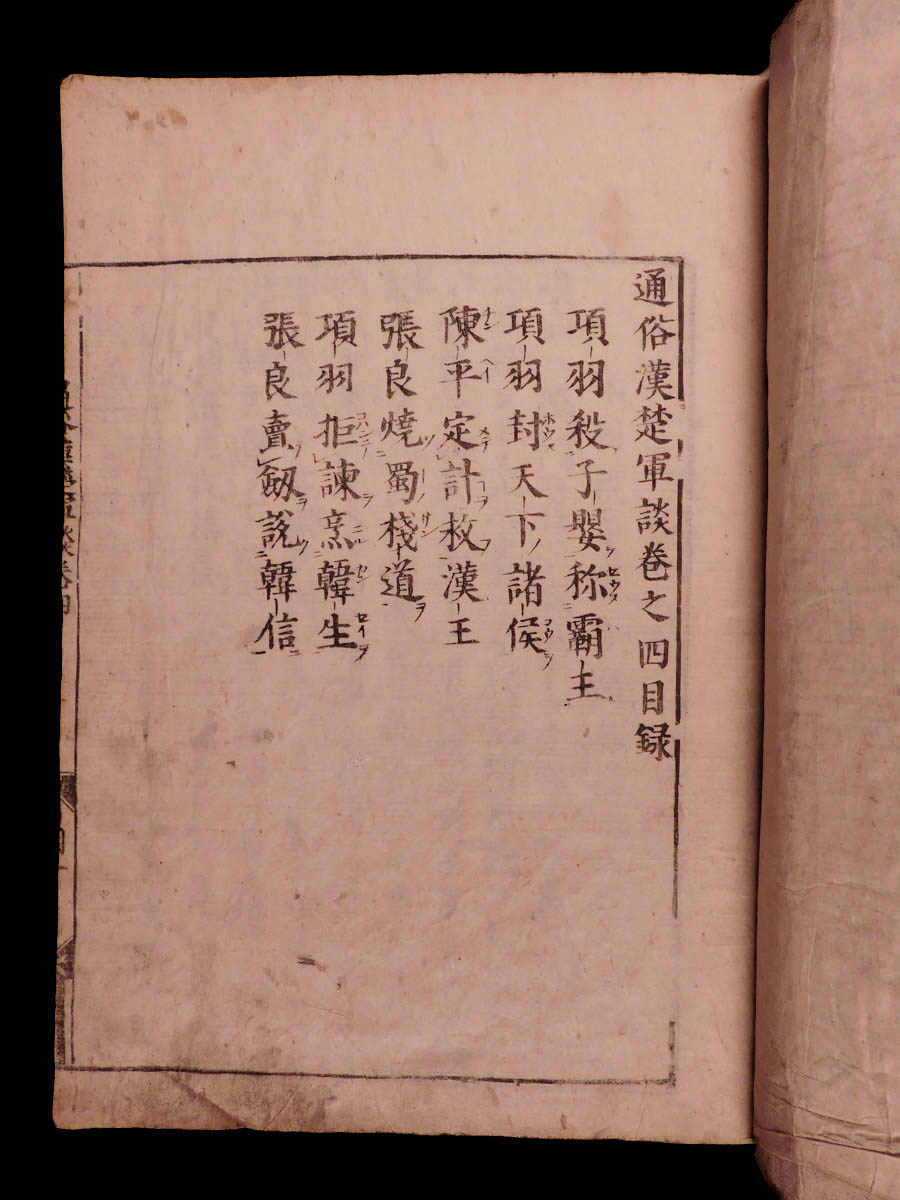 通俗漢楚軍談巻之四目録
項羽殺子嬰称霸主
項羽封天下諸侯
陳平定計救漢王
張良燒蜀棧道
項羽拒諫烹韓生
張良賣劔說韓信